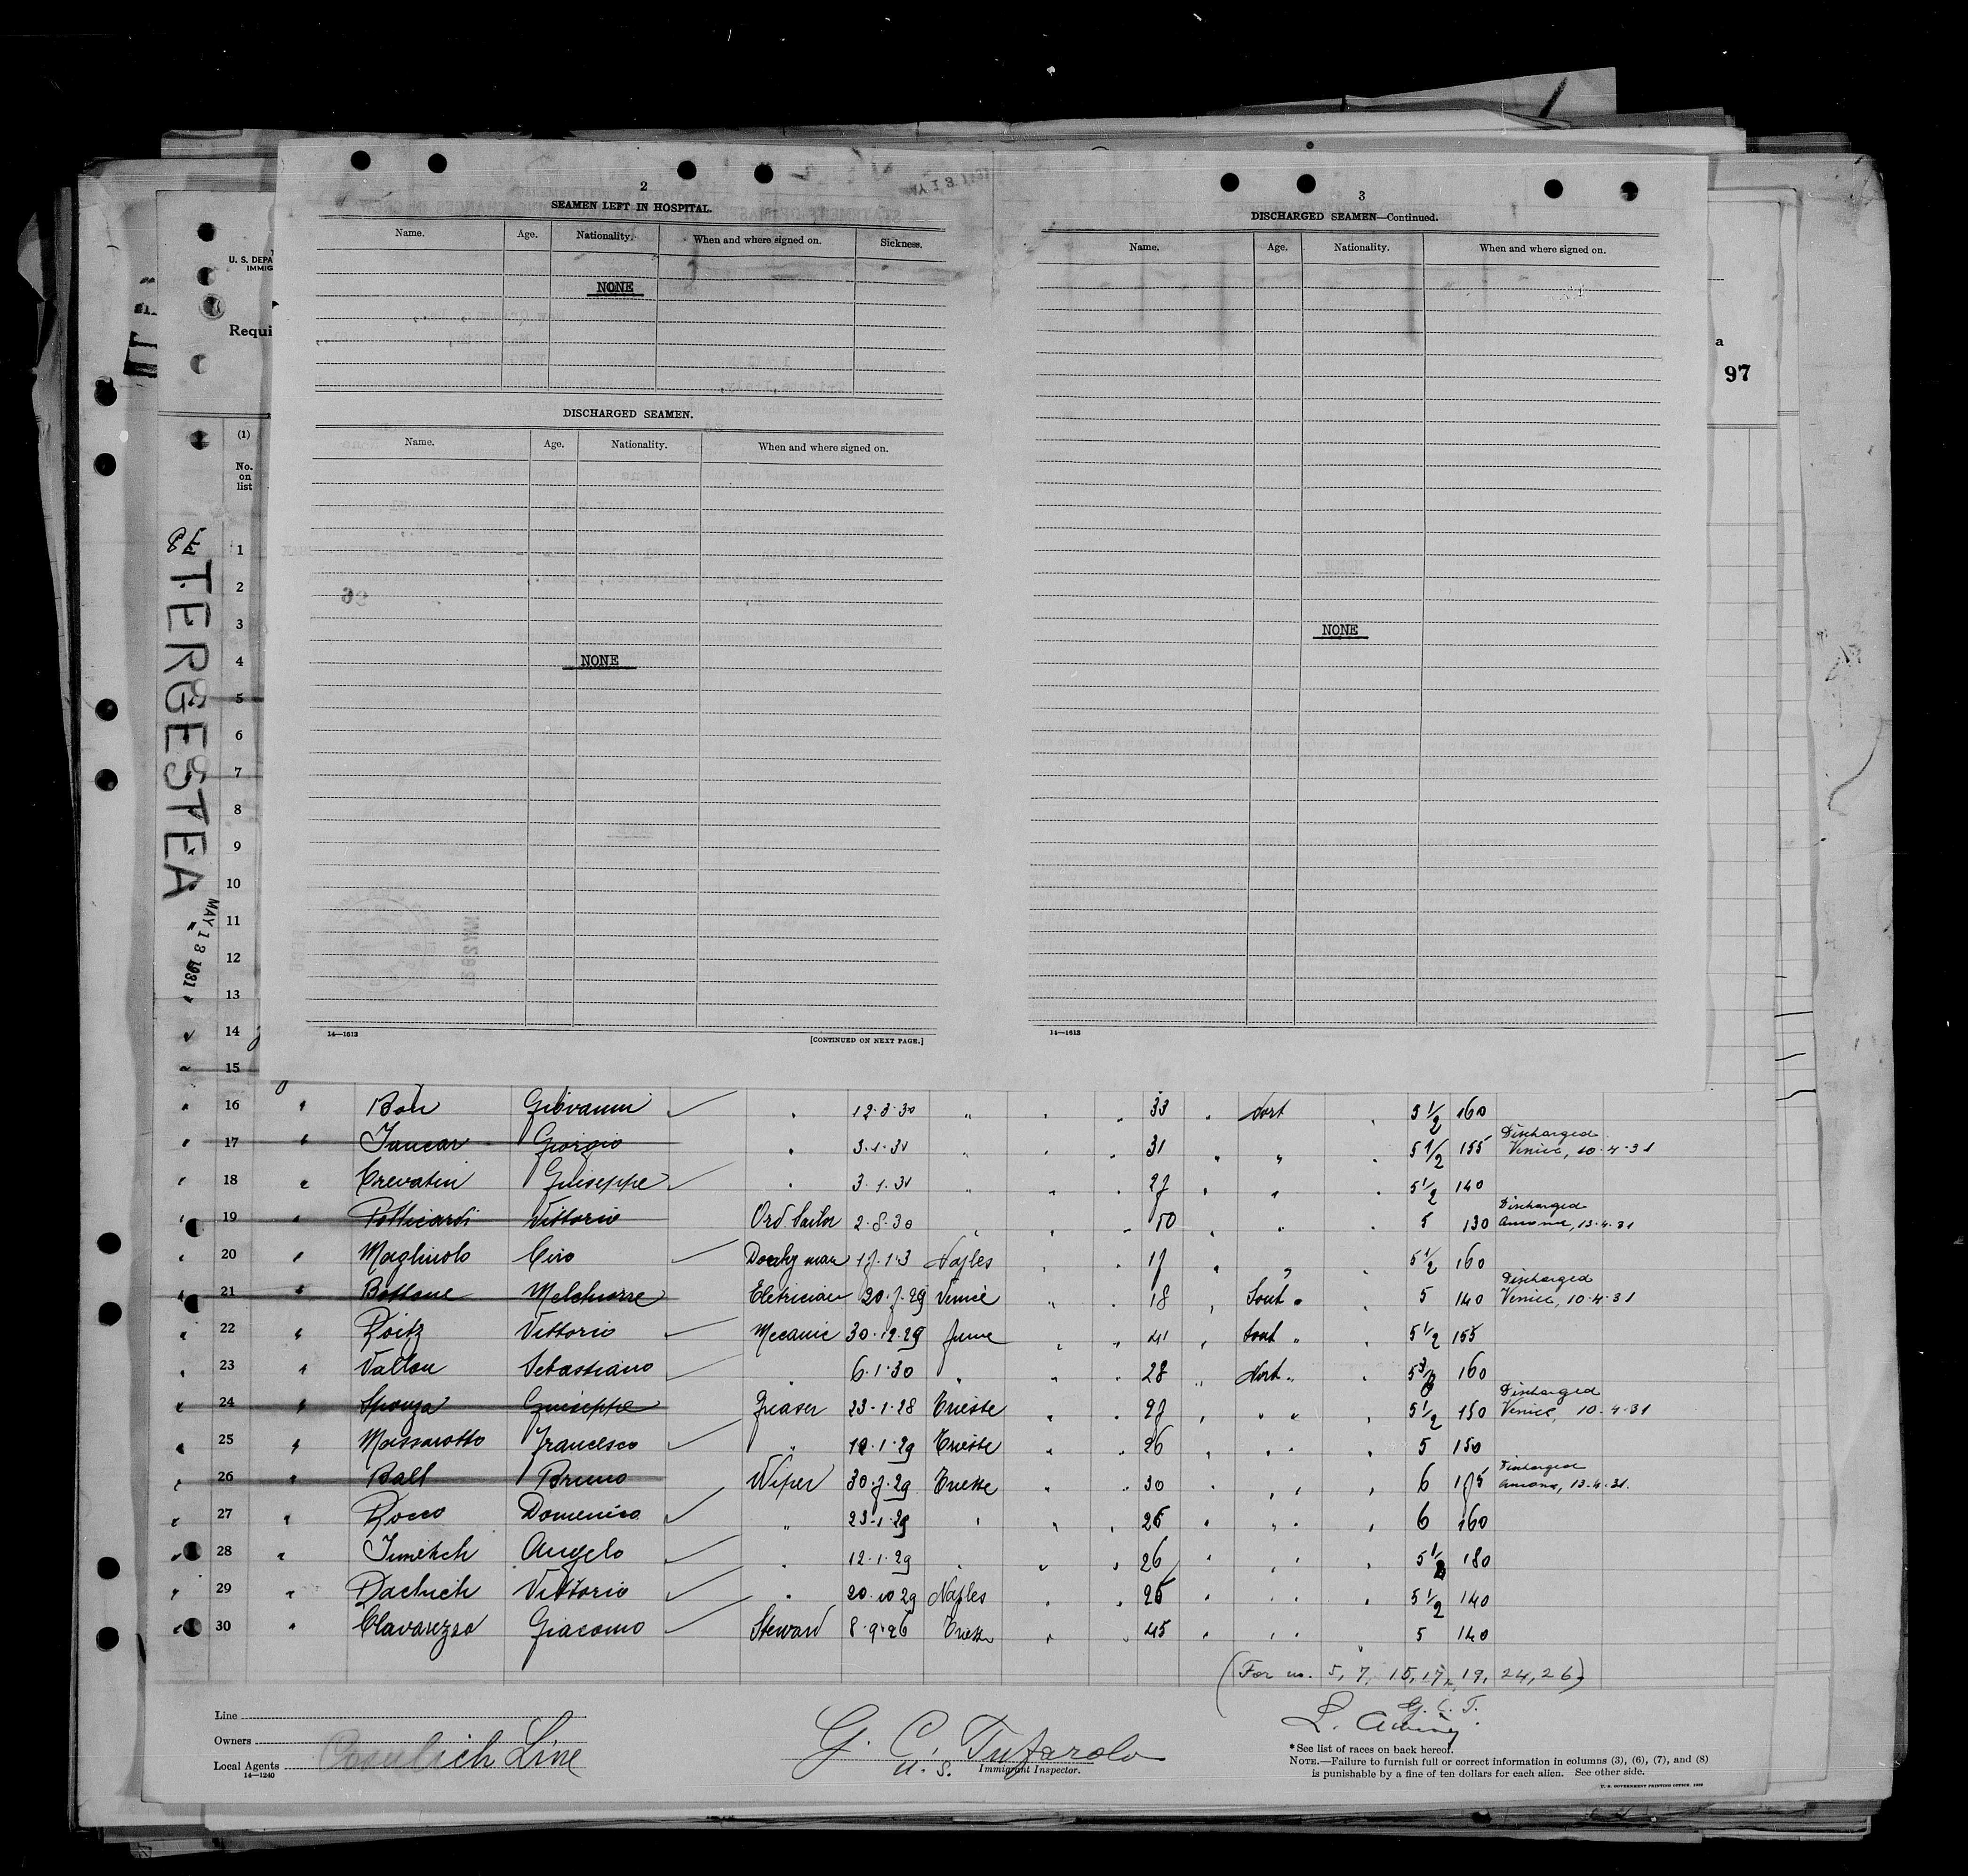 2
SEAMEN LEFT IN HOSPITAL.
Name. Age. Nationality. When and where signed on. Sickness.
NONE
DISCHARGED SEAMEN.
Name. Age. Nationality. When and where signed on.
NONE
14—1613 [CONTINUED ON NEXT PAGE.]
3
DISCHARGED SEAMEN—Continued.
Name. Age. Nationality. When and where signed on.
NONE
14—1613
U. S. DEPA
IMMIG
Requi
a
97
(1)
No.
on
list
TERGESTEA
MAY 18 1931
1
2
3
4
5
6
7
8
9
10
11
12
13
14
15
16 " Bon Giovanni 12·8·30 " 33 " Nort 5 1/2 160
17 " Giorgio 3·1·31 " 31 " " 5 1/2 155 Discharged Venice, 10·4·31
18 " Crevatin Giuseppe 3·1·31 " 27 " " 5 1/2 140
19 " Vittorio Ord. Sailor 2·8·30 " 50 " 5 130 Discharged Ancona, 13·4·31
20 " Ciro Naples 17 " " 5 1/2 160
21 " Bottone Melchiorre Eletrician 20·7·29 Venice " 18 " Sout " 5 140 Discharged Venice, 10·4·31
22 " Roitz Vittorio Mecanic 30·12·29 Fiume " 41 " Sout " 5 1/2 155
23 " Vallon Sebastiano 6·1·30 " 28 " Nort " 160
24 " Sponza Giuseppe Greaser 23·1·28 Trieste " 27 " " 5 1/2 150 Discharged Venice, 10·4·31
25 " Massarotto Francesco " 12·1·29 Trieste " 26 " " 5 150
26 " Ball Bruno Wiper 30·7·29 Trieste " 30 " " 6 175 Discharged Ancona, 13·4·31.
27 " Rocco Domenico " 23·1·29 " 26 " " 6 160
28 " Angelo " 12·1·29 " 26 " " 180
29 " Vittorio " 20·10 29 Naples " 26 " " 5 1/2 140
30 " Giacomo Steward 8·9·26 Trieste " 45 " " 5 140
(For no. 5, 7, 15, 17, 19, 24, 26)
G. C. T.
Line
Owners
Local Agents Cosulich Line
14—1240
G. C. Tufarolo
U. S. Immigrant Inspector.
*See list of races on back hereof.
NOTE.—Failure to furnish full or correct information in columns (3), (6), (7), and (8)
is punishable by a fine of ten dollars for each alien. See other side.
U. S. GOVERNMENT PRINTING OFFICE